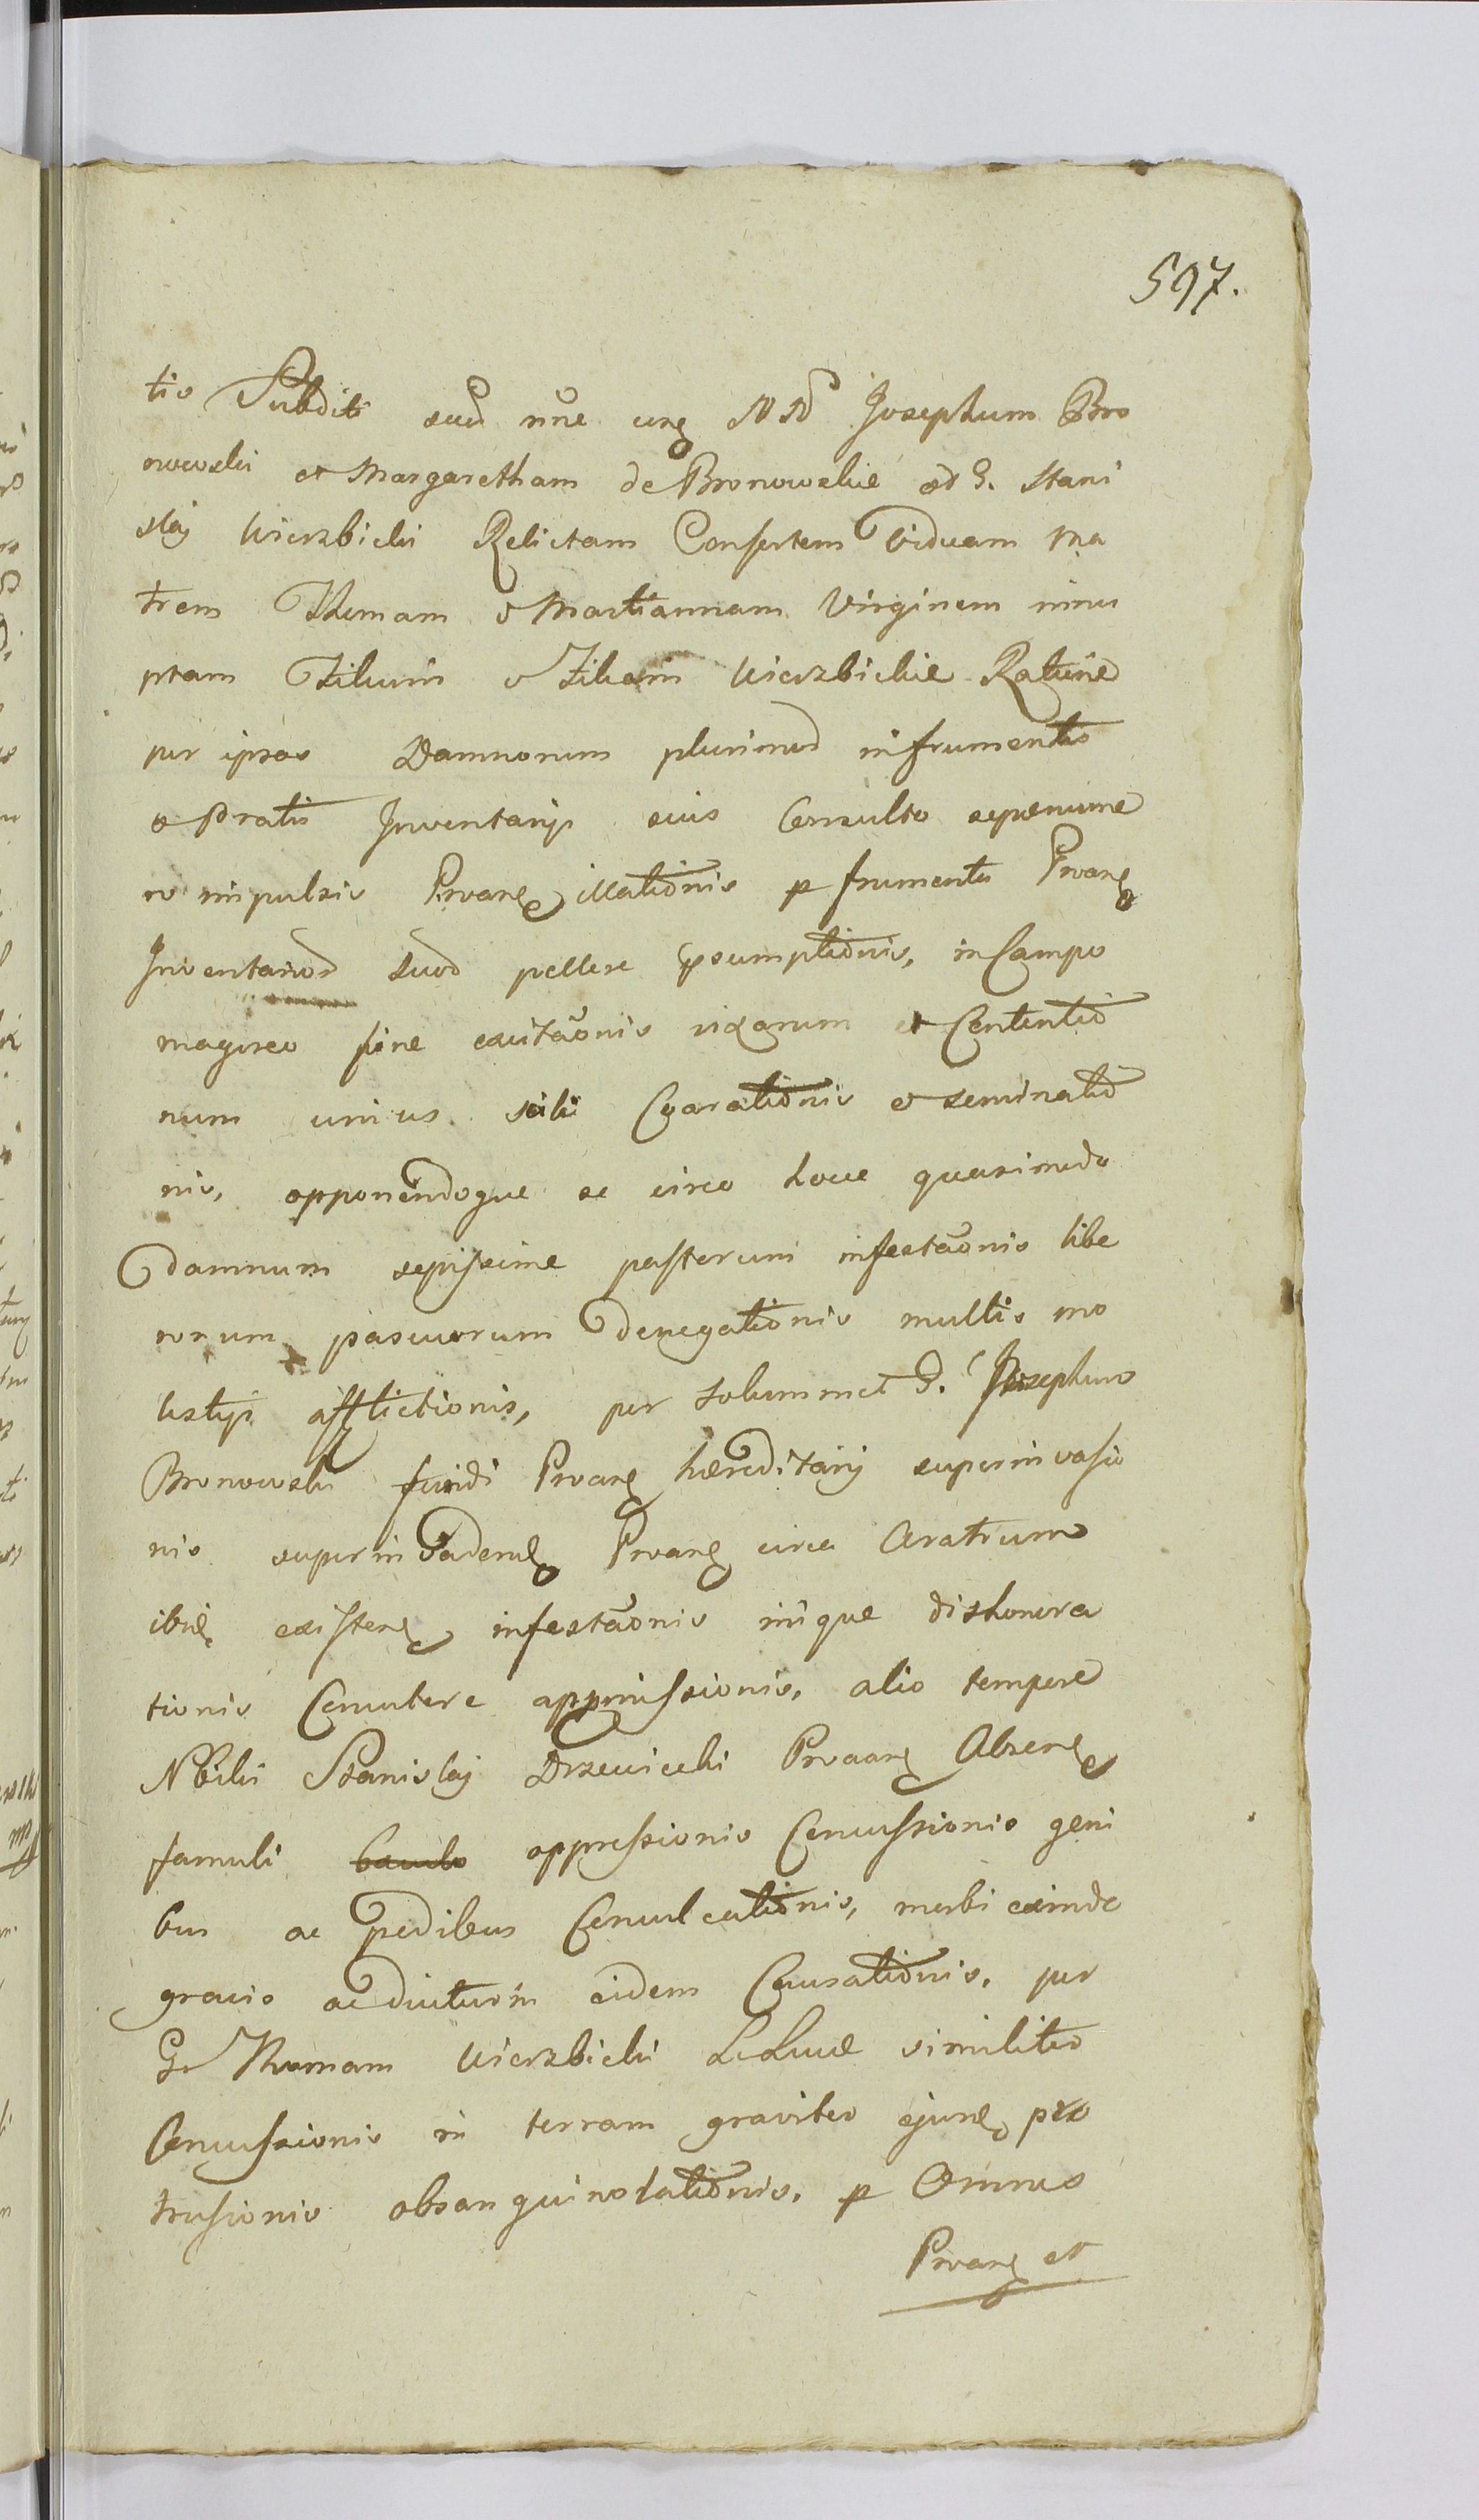 597.
tis Subditi suā nne cnq NN Josephum Bro
nowski et Margaretham de Bronowskie od G. Stani
slaj Wierzbicki Relictam Consortem Viduam Ma
trem Thomam & Martiannam Virginem innu
ptam Filium & Filiam Wierzbickie Ratione
per ipsos Damnorum plurimod in frumentis
& Pratis Inventarijs suis Consulto sepenume
ro impulsis Proang illationis p frumentis Proang
Inventariod suod pellere psumptionis, in Campo
magreo sine excitaonis rixarum et Contentio
num unius scili Coarationis & seminatio
nis, opponendoque se circa hocce quasimodo
damnum sepissime pastorum infestaonis libe
rorum pascuorum denegationis multis mo
lestijs afflictionis, per solummet G. Josephum
Bronowski fundi Proang hæreditarij superinvasio
nis superinvadend Proang circa Aratrum
ibid existeng infestaonis iniique dishonora
tionis Conutere appromissionis, alio tempore
Nbilis Stanislaj Drzewiecki Proang Absenq
famuli oppressionis Concussionis geni
bus ac pedibus Conculcationis, morbi exinde
gravis ac diuturni eidem Causationis, per
G Thomam Wierzbicki similiter
Concussionis in terram graviter ejusd pro
trusionis obsanguinolationis, p Omnes
Proang et